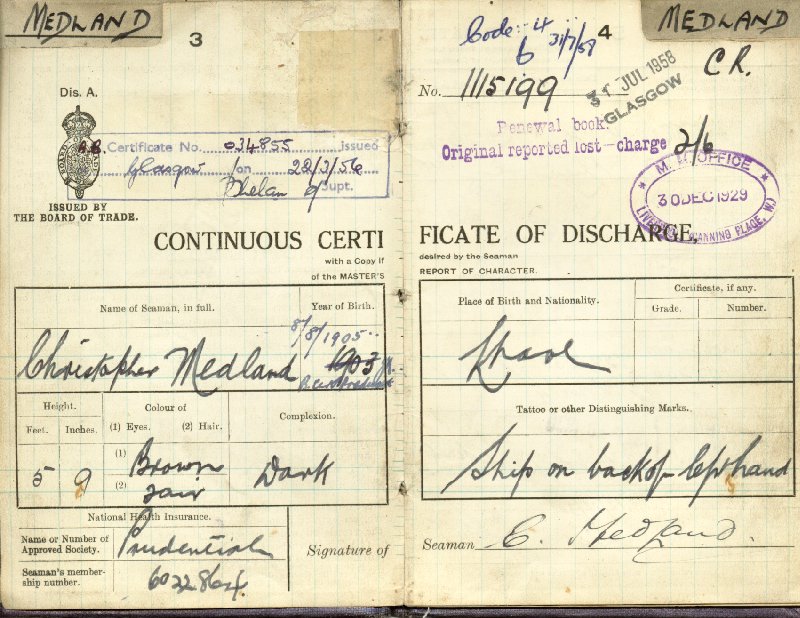 MEDLAND
3
Dis. A.
Certificate No. 034855 issued
Glasgow on 22/3/56
Supt.
ISSUED BY
THE BOARD OF TRADE.
CONTINUOUS CERTI
with a Copy if
of the MASTER'S
Name of Seaman, in full.
Year of Birth.
8/8/1905
Christopher Medland
1903
Height.
Feet.
Inches.
Colour of
(1) Eyes.
(2) Hair.
Complexion.
5
9
(1) Brown
(2) Fair
Dark
National Health Insurance.
Name or Number of
Approved Society.
Prudential
Seaman's member-
ship number.
Signature of
MEDLAND
4
Code: 4
6
31/7/58
C R.
No. 1115199
31 JUL 1958
GLASGOW
Renewal book.
Original reported lost—charge 2/6
M. M. OFFICE
30 DEC 1929
FICATE OF DISCHARGE,
desired by the Seaman
REPORT OF CHARACTER.
Place of Birth and Nationality.
Certificate, if any.
Grade.
Number.
Tattoo or other Distinguishing Marks.
Ship on back of left hand
Seaman C. Medland.